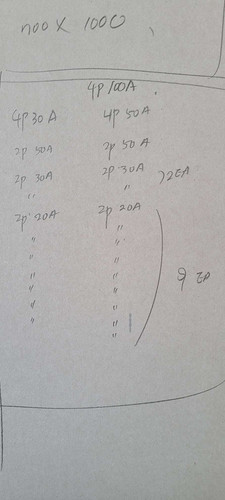 1100 X 1000
4p 100A
4p 30A 4p 50A
2p 50A 2p 50A
2p 30A 2p 30A
" " ) 2EA
2p 20A 2p 20A
" "
" "
" "
" " 9 EA
" "
" "
" "
"